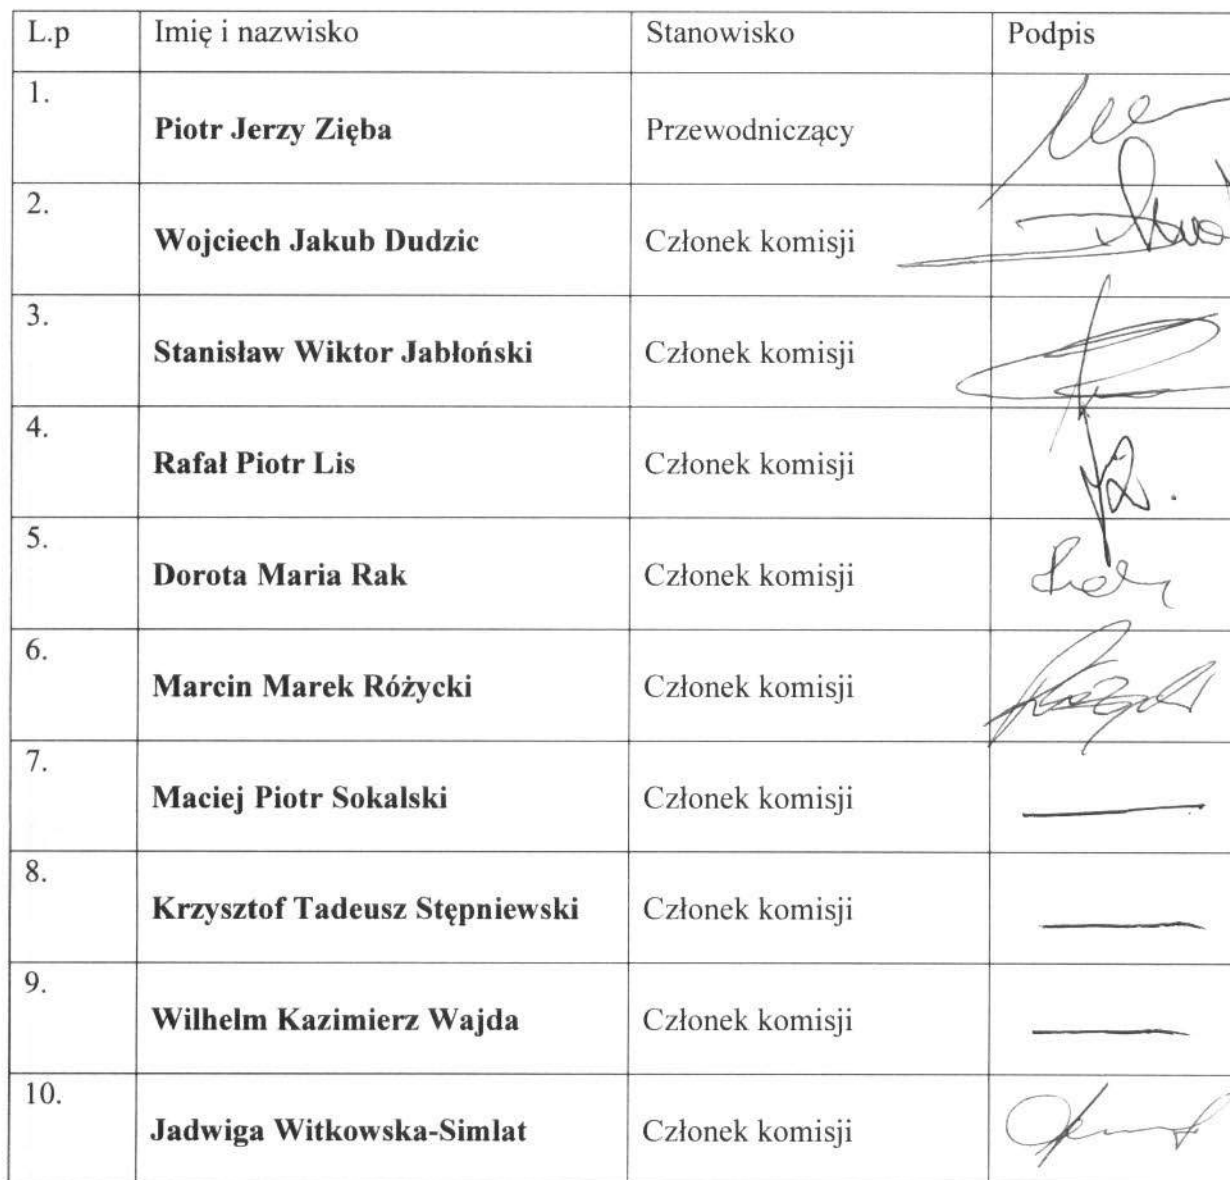 L.p Imię i nazwisko Stanowisko Podpis
1.
Piotr Jerzy Zięba Przewodniczący
2.
Wojciech Jakub Dudzic Członek komisji
3.
Stanisław Wiktor Jabłoński Członek komisji
4.
Rafał Piotr Lis Członek komisji
5.
Dorota Maria Rak Członek komisji
6.
Marcin Marek Różycki Członek komisji
7.
Maciej Piotr Sokalski Członek komisji
8.
Krzysztof Tadeusz Stępniewski Członek komisji
9.
Wilhelm Kazimierz Wajda Członek komisji
10.
Jadwiga Witkowska-Simlat Członek komisji